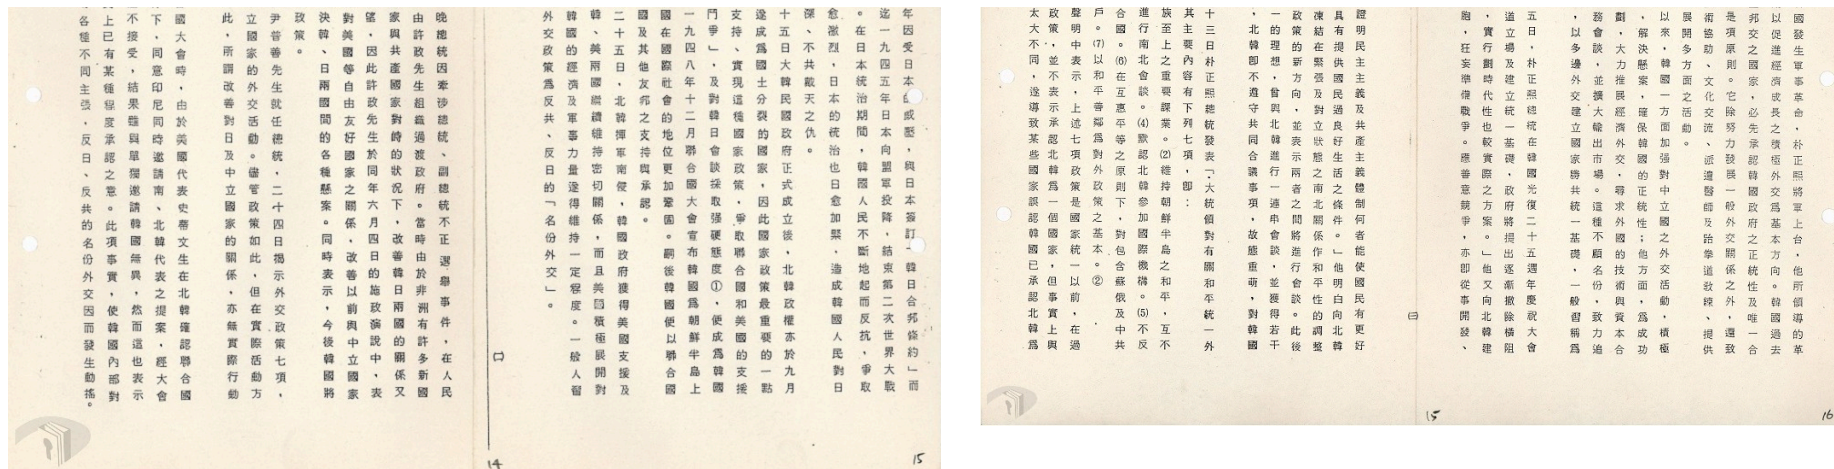 年因受日本的威壓，與日本簽訂「韓日合邦條約」而
迄一九四五年日本向盟軍投降，結束第二次世界大戰
。在日本統治期間，韓國人民不斷地起而反抗，爭取
愈激烈，日本的統治也日愈加緊，造成韓國人民對日
深、不共戴天之仇。
十五日大韓民國政府正式成立後，北韓政權亦於九月
遂成爲國土分裂的國家，因此國家政策最重要的一點
支持、實現這種國家政策，爭取聯合國和美國的支援
鬥爭」，及對韓日會談採取强硬態度①，便成爲韓國
一九四八年十二月聯合國大會宣布韓國爲朝鮮半島上
國在國際社會的地位更加鞏固。嗣後韓國便以聯合國
國及其他友邦之支持與承認。
二十五日，北韓揮軍南侵，韓國政府獲得美國支援及
韓、美兩國繼續維持密切關係，而且美國積極展開對
韓國的經濟及軍事力量遂得維持一定程度。一般人習
外交政策爲反共、反日的「名份外交」。
㈡
15
晚總統因牽涉總統、副總統不正選舉事件，在人民
由許政先生組織過渡政府。當時由於非洲有許多新國
家與共產國家對峙的狀況下，改善韓日兩國的關係又
望，因此許政先生於同年六月四日的施政演說中，表
對美國等自由友好國家之關係，改善以前與中立國家
決韓、日兩國間的各種懸案。同時表示，今後韓國將
政策。
尹普善先生就任總統，二十四日揭示外交政策七項，
立國家的外交活動。儘管政策如此，但在實際活動方
此，所謂改善對日及中立國家的關係，亦無實際行動
國大會時，由於美國代表史蒂文生在北韓確認聯合國
下，同意印尼同時邀請南、北韓代表之提案，經大會
不接受，結果雖與單獨邀請韓國無異，然而這也表示
上已有某種程度承認之意。此項事實，使韓國內部對
各種不同主張，反日、反共的名份外交因而發生動搖。
14
國發生軍事革命，朴正熙將軍上台，他所領導的革
以促進經濟成長之積極外交爲基本方向。韓國過去
邦交之國家，必先承認韓國政府之正統性及唯一合
是項原則。它除努力發展一般外交關係之外，還致
術協助、文化交流、派遣醫師及跆拳道敎練、提供
展開多方面之活動。
以來，韓國一方面加張對中立國之外交活動，積極
，解決懸案，確保韓國的正統性；他方面，爲成功
劃，大力推展經濟外交，尋求外國的技術與資本合
務會談，並擴大輸出市場。這種不顧名份，致力追
，以多邊外交建立國家勝共統一基礎，一般習稱爲
五日，朴正熙總統在韓國光復二十五週年慶祝大會
道立場及建立統一基礎，政府將提出逐漸撤除橫阻
，實行劃時代性也較實際之方案。」他又向北韓建
胞，狂妄準備戰爭。應善意競爭，亦卽從事開發、
㈢
16
證明民主主義及共產主義體制何者能使國民有更好
具有提供國民過良好生活之條件。」他明白向北韓
凍結在緊張及對立狀態之南北關係作和平性的調整
政策的新方向，並表示兩者之間將進行會談。此後
一的理想，曾與北韓進行一連串會談，並獲得若干
，北韓卽不遵守共同合議事項，故態重萌，對韓國
十三日朴正熙總統發表「大統領對有關和平統一外
其主要內容有下列七項，卽：
族至上之重要課業。⑵維持朝鮮半島之和平，互不
進行南北會談。⑷歡認北韓參加國際機構。⑸不反
合國。⑹在互惠平等之原則下，對包含蘇俄及中共
戶。⑺以和平善鄰爲對外政策之基本。②
聲明中表示，上述七項政策是國家統一以前，在過
政策，並不表示承認北韓爲一個國家，但事實上與
太大不同，遂導致某些國家誤認韓國已承認北韓爲
15